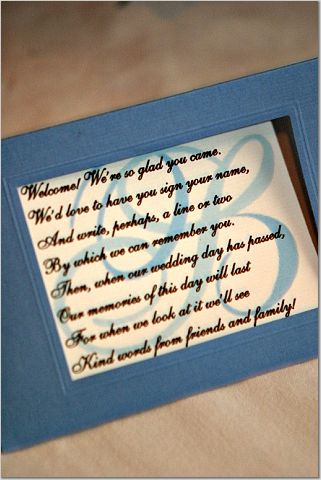 Welcome! We're so glad you came.
We'd love to have you sign your name,
And write, perhaps, a line or two
By which we can remember you.
Then, when our wedding day has passed,
Our memories of this day will last
For when we look at it we'll see
Kind words from friends and family!